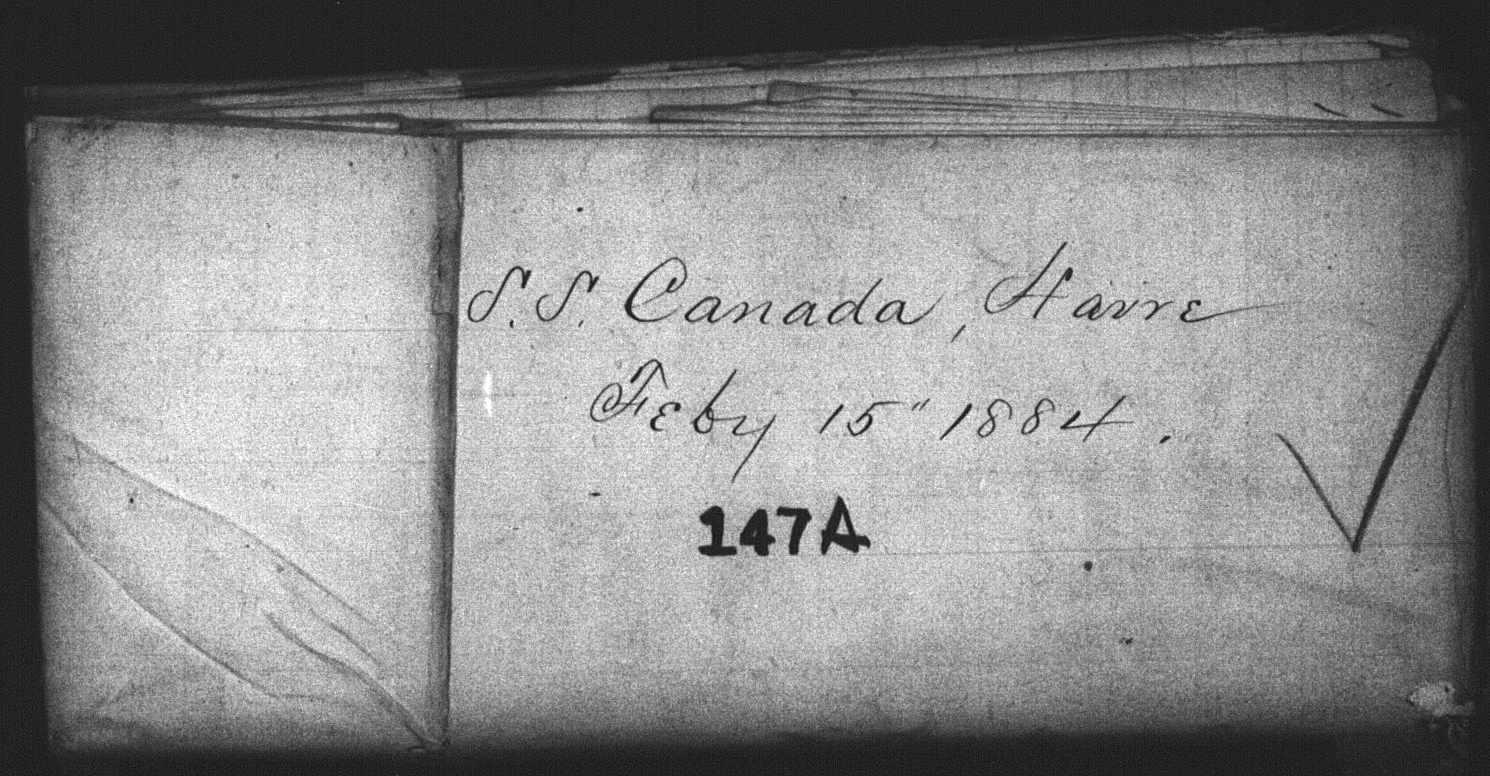 S.S. Canada, Havre
Feby 15" 1884.
147A